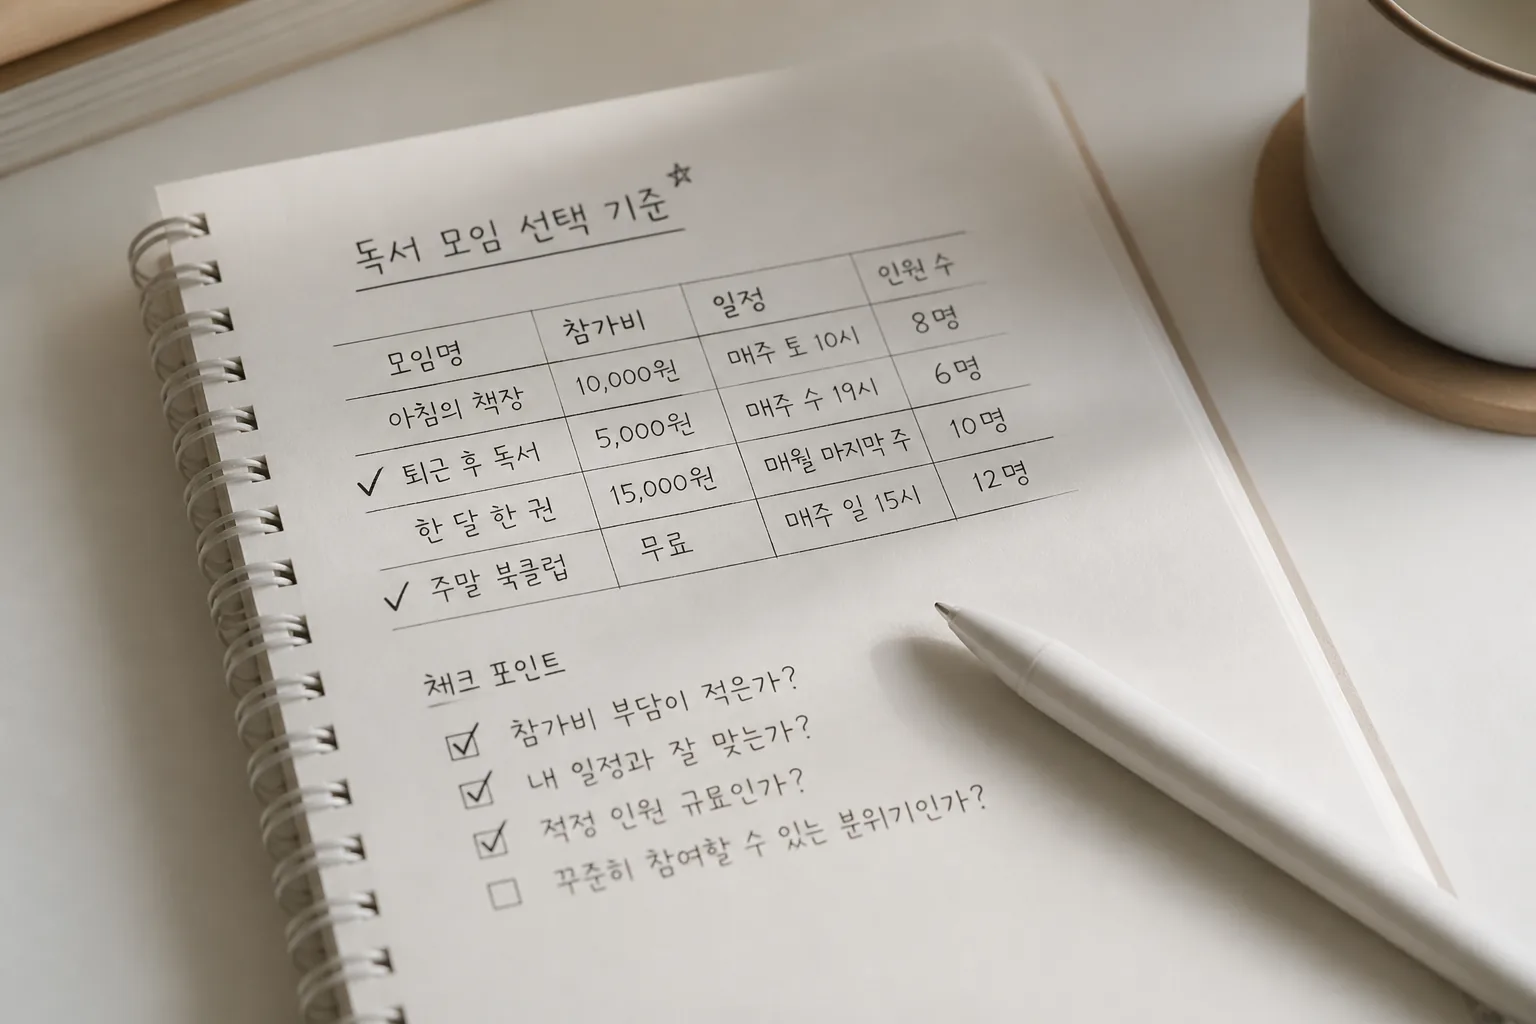 독서 모임 선택 기준☆
모임명 참가비 일정 인원 수
아침의 책장 10,000원 매주 토 10시 8명
✓ 퇴근 후 독서 5,000원 매주 수 19시 6명
한 달 한 권 15,000원 매월 마지막 주 10명
✓ 주말 북클럽 무료 매주 일 15시 12명
체크 포인트
☑ 참가비 부담이 적은가?
☑ 내 일정과 잘 맞는가?
☑ 적정 인원 규묘인가?
☐ 꾸준히 참여할 수 있는 분위기인가?